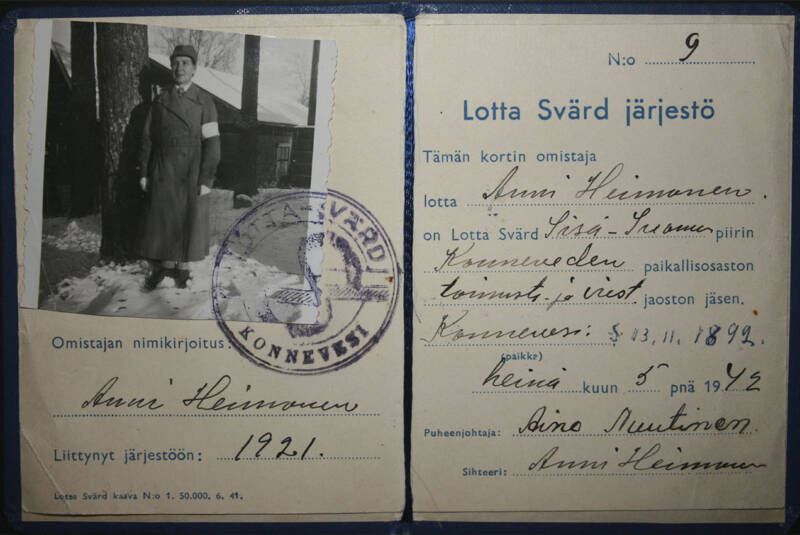 LOTTA-SVÄRD
KONNEVESI
Omistajan nimikirjoitus:
Anni Heimonen
Liittynyt järjestöön: 1921.
Lotta Svärd kaava N:o 1. 50.000. 6. 41.
N:o 9
Lotta Svärd järjestö
Tämän kortin omistaja
lotta Anni Heimonen.
on Lotta Svärd Sisä-Suomen piirin
Konneveden paikallisosaston
toimisto- ja viest. jaoston jäsen.
Konnevesi: s 13.11.1892.
(paikka)
heinä kuun 5 pnä 1942
Puheenjohtaja: Aino Nuutinen.
Sihteeri: Anni Heimonen